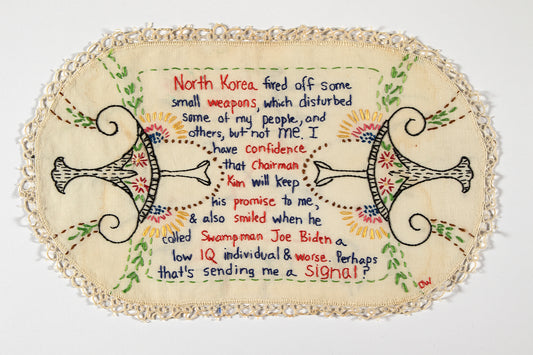 North Korea fired off some
small weapons, which disturbed
some of my people, and
others, but not me. I
have confidence
that Chairman
Kim will keep
his promise to me,
& also smiled when he
called Swampman Joe Biden a
low IQ individual & worse. Perhaps
that's sending me a signal?
DW